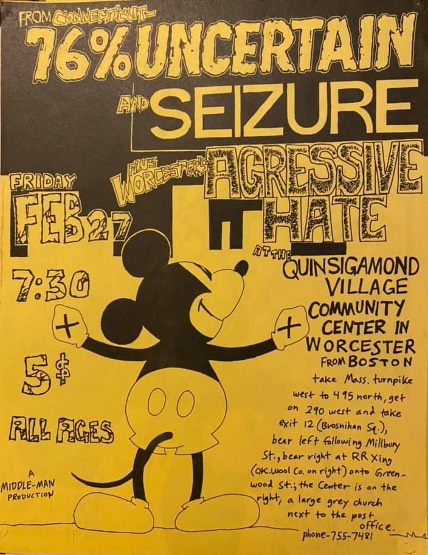 FROM CONNECTICUT—
76% UNCERTAIN
AND SEIZURE
PLUS WORCESTER'S
AGRESSIVE
HATE
FRIDAY
FEB 27
7:30
5$
ALL AGES
A
MIDDLE-MAN
PRODUCTION
AT THE
QUINSIGAMOND
VILLAGE
COMMUNITY
CENTER IN
WORCESTER
FROM BOSTON
take Mass. turnpike
west to 495 north, get
on 290 west and take
exit 12 (Brosnihan Sq.),
bear left following Millbury
St., bear right at RR Xing
(OK. Wool Co. on right) onto Green-
wood St.; the Center is on the
right, a large grey church
next to the post
office.
phone-755-7481